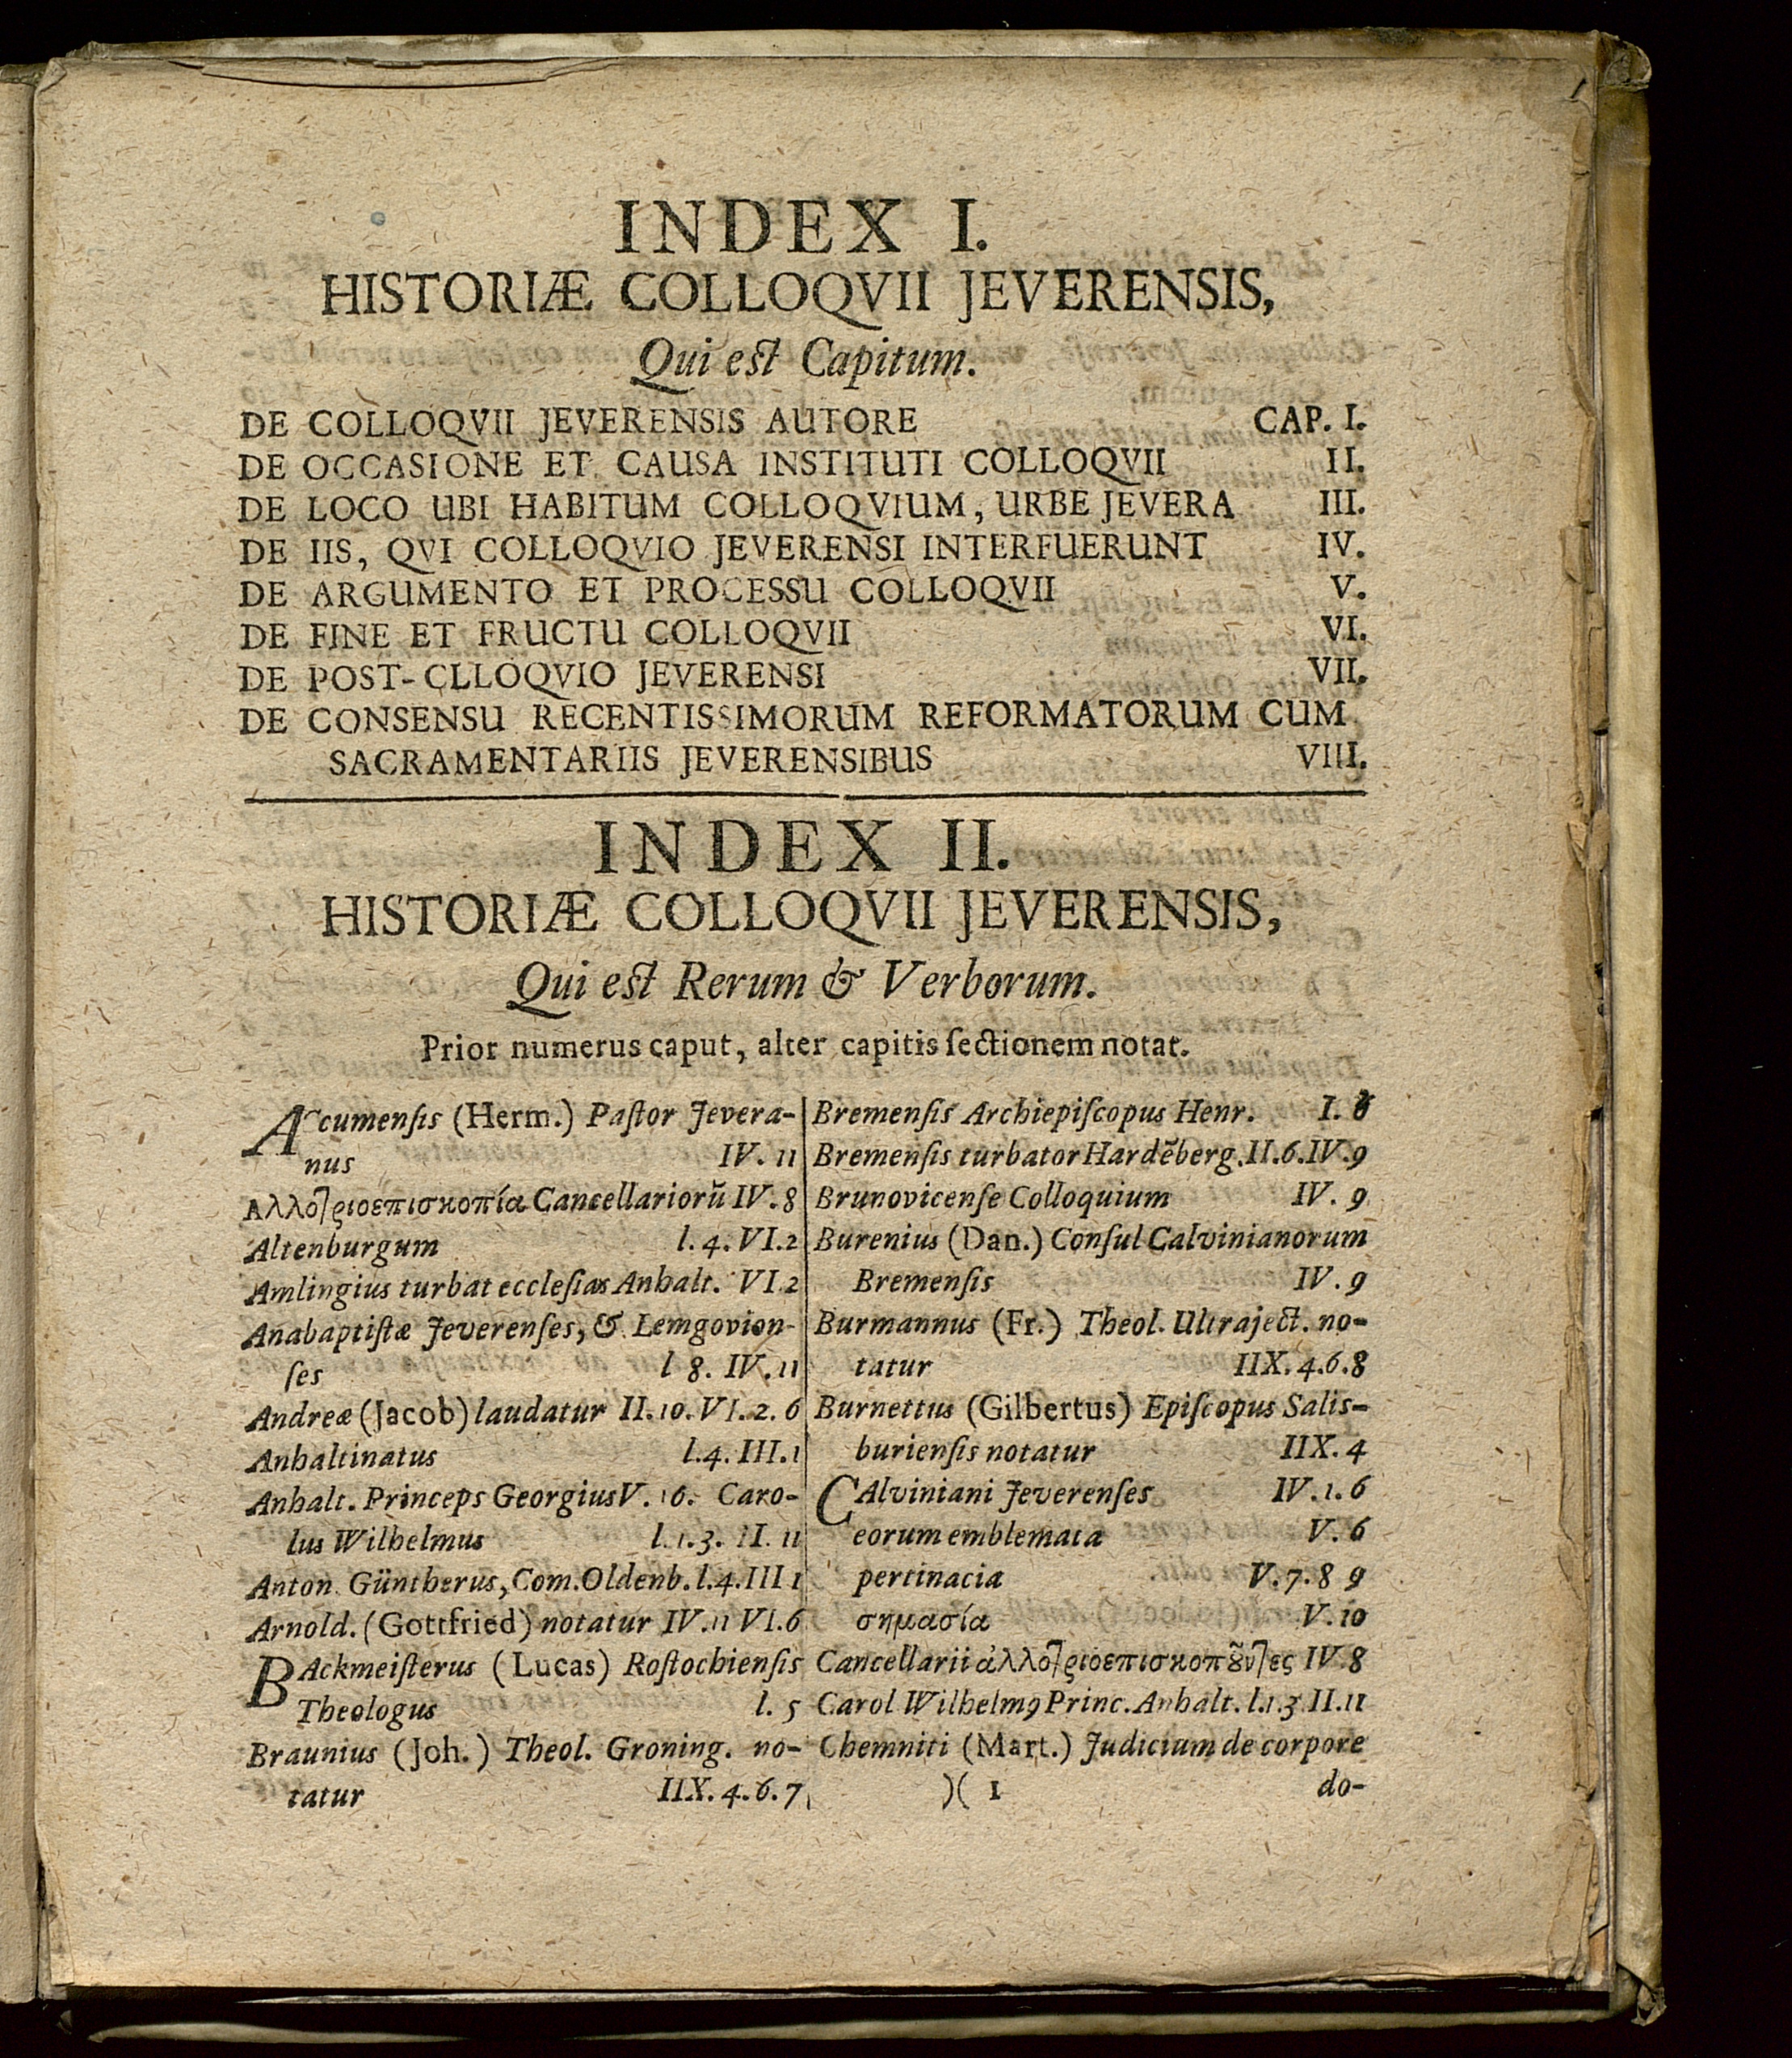 INDEX I.
HISTORIÆ COLLOQVII JEVERENSIS,
Qui est Capitum.
DE COLLOQVII JEVERENSIS AUTORE CAP. I.
DE OCCASIONE ET CAUSA INSTITUTI COLLOQVII II.
DE LOCO UBI HABITUM COLLOQVIUM, URBE JEVERA III.
DE IIS, QVI COLLOQVIO JEVERENSI INTERFUERUNT IV.
DE ARGUMENTO ET PROCESSU COLLOQVII V.
DE FINE ET FRUCTU COLLOQVII VI.
DE POST-CLLOQVIO JEVERENSI VII.
DE CONSENSU RECENTISSIMORUM REFORMATORUM CUM
SACRAMENTARIIS JEVERENSIBUS VIII.
INDEX II.
HISTORIÆ COLLOQVII JEVERENSIS,
Qui est Rerum & Verborum.
Prior numerus caput, alter capitis ſectionem notat.
Accumenſis (Herm.) Paſtor Jevera-
nus IV. 11
Αλλοτριοεπισκοπία Cancellariorũ IV. 8
Altenburgum I. 4. VI. 2
Amlingius turbat eccleſias Anhalt. VI. 2
Anabaptiſtæ Jeverenſes, & Lemgovien-
ſes I 8. IV. 11
Andreæ (Jacob) laudatur II. 10. VI. 2. 6
Anhaltinatus I. 4. III. 1
Anhalt. Princeps Georgius V. 16. Caro-
lus Wilhelmus I. 1. 3. II. 11
Anton. Güntherus, Com. Oldenb. I. 4. III 1
Arnold. (Gottfried) notatur IV. 11 VI. 6
BAckmeiſterus (Lucas) Roſtochienſis
Theologus I. 5
Braunius (Joh.) Theol. Groning. no-
tatur IIX. 4. 6. 7
Bremenſis Archiepiſcopus Henr. I.
Bremenſis turbator Hardẽberg. II. 6. IV. 9
Brunovicenſe Colloquium IV. 9
Burenius (Dan.) Conſul Calvinianorum
Bremenſis IV. 9
Burmannus (Fr.) Theol. Ultraject. no-
tatur IIX. 4. 6. 8
Burnettus (Gilbertus) Epiſcopus Salis-
burienſis notatur IIX. 4
CAlviniani Jeverenſes IV. 1. 6
eorum emblemata V. 6
pertinacia V. 7. 8 9
σημασία V. 10
Cancellarii ἀλλοτριοεπισκοποῦντες IV. 8
Carol Wilhelmꝰ Princ. Anhalt. I. 1. 3 II. 11
Chemniti (Mart.) Judicium de corpore
)( 1 do-